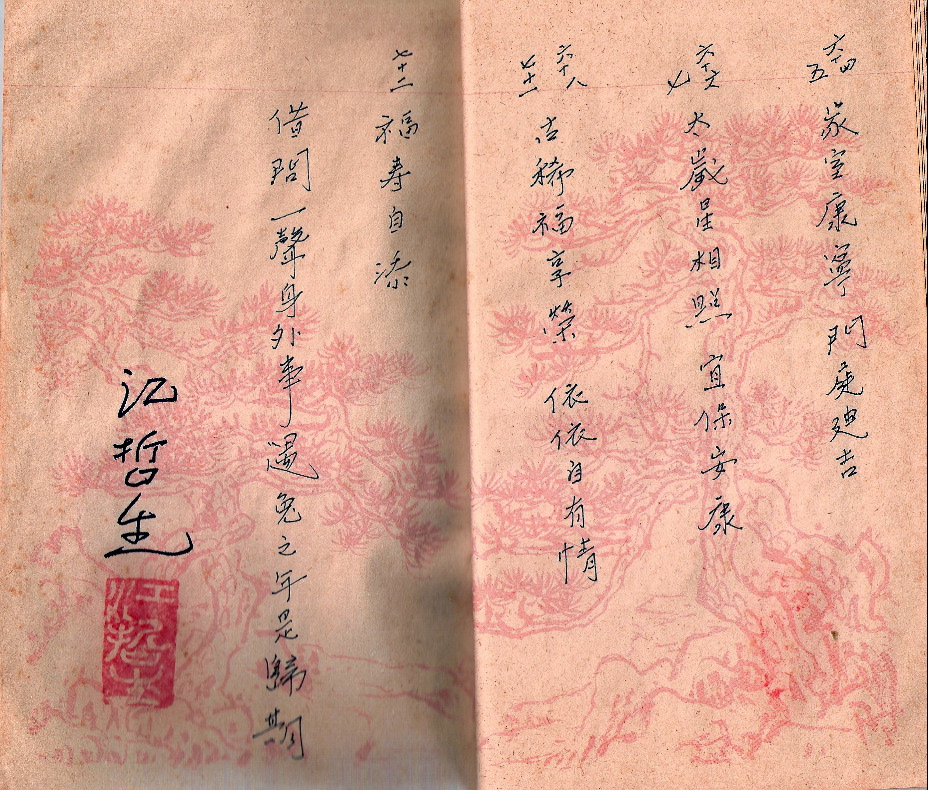 六十四 五 家室康寧 門庭廸吉
六十六 七 太歲星相照 宜保安康
六十八 七十一 古稀福享榮 依依自有情
七十二 福寿自添
借問一聲身外事遇兔之年是歸期
江哲生
江哲生